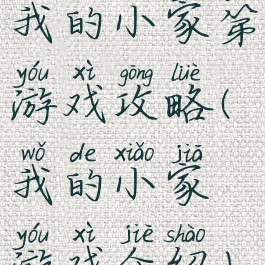 我的小家第
yóu xì gōng lüè
游戏攻略(
wǒ de xiǎo jiā
我的小家
yóu xì jiè shào
游戏介绍)